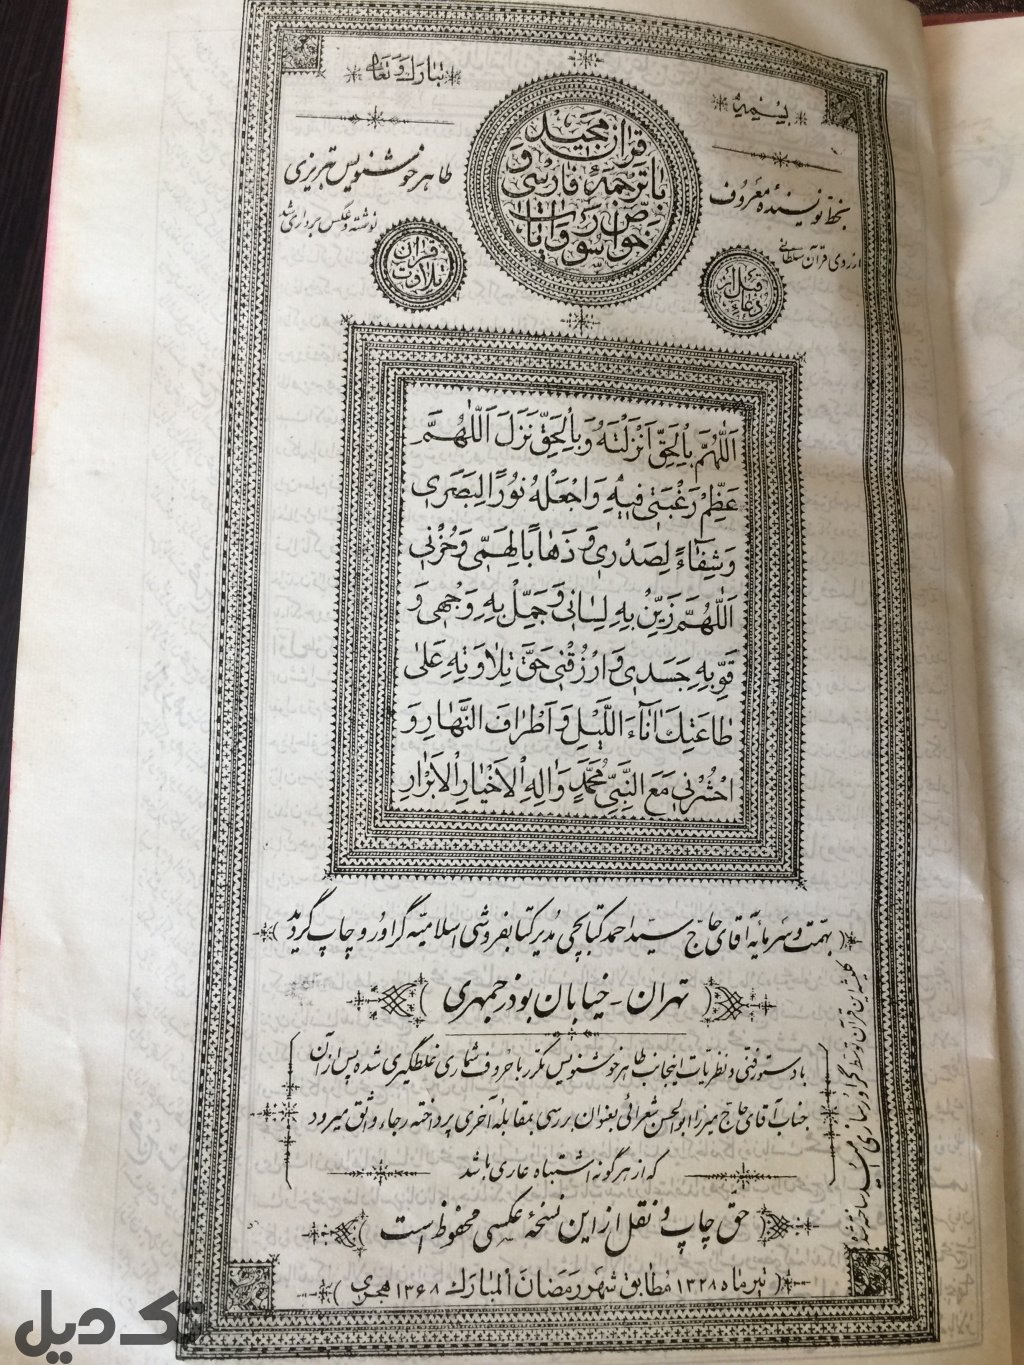 بسمه
تبارک و تعالی
قرآن مجید
با ترجمهٔ فارسی و
خواص
سور و آیات
بخط نویسندهٔ معروف
طاهر خوشنویس تبریزی
از روی قرآن سلطانی
نوشته و عکس برداری شد
دعاء قبل از
تلاوت قرآن
اَللّٰهُمَّ بِالْحَقِّ اَنْزَلْتَهُ وَ بِالْحَقِّ نَزَلَ اَللّٰهُمَّ
عَظِّمْ رَغْبَتی فیهِ وَاجْعَلْهُ نُورًا لِبَصَری
وَ شِفٰاءً لِصَدْری وَ ذَهٰابًا لِهَمّی وَ حُزْنی
اَللّٰهُمَّ زَیِّنْ بِهِ لِسٰانی وَ جَمِّلْ بِهِ وَجْهی وَ
قَوِّ بِهِ جَسَدی وَ ارْزُقْنی حَقَّ تِلٰاوَتِهِ عَلیٰ
طٰاعَتِکَ اٰنٰاءَ اللَّیْلِ وَ اَطْرٰافَ النَّهٰارِ وَ
احْشُرْنی مَعَ النَّبِیِّ مُحَمَّدٍ وَ اٰلِهِ الْاَخْیٰارِ الْاَبْرٰارِ
(بهمت و سرمایه آقای حاج سید احمد کتابچی مدیر کتابفروشی اسلامیه گراور و چاپ گردید)
(تهران - خیابان بوذرجمهری)
با دستور فنی و نظریات اینجانب طاهر خوشنویس مکرر با حروف شماری غلطگیری شده پس از آن
جناب آقای حاج میرزا ابوالحسن شعرائی بعنوان بررسی بمقابله آخری پرداخته رجاء واثق میرود
که از هرگونه اشتباه عاری باشد
(حق چاپ و نقل از این نسخهٔ عکسی محفوظ است)
(تیرماه ۱۳۲۸ مطابق شهر رمضان المبارک ۱۳۶۸ هجری)
کلیشه این قرآن توسط گراورسازی ساخته شده
تک دیل